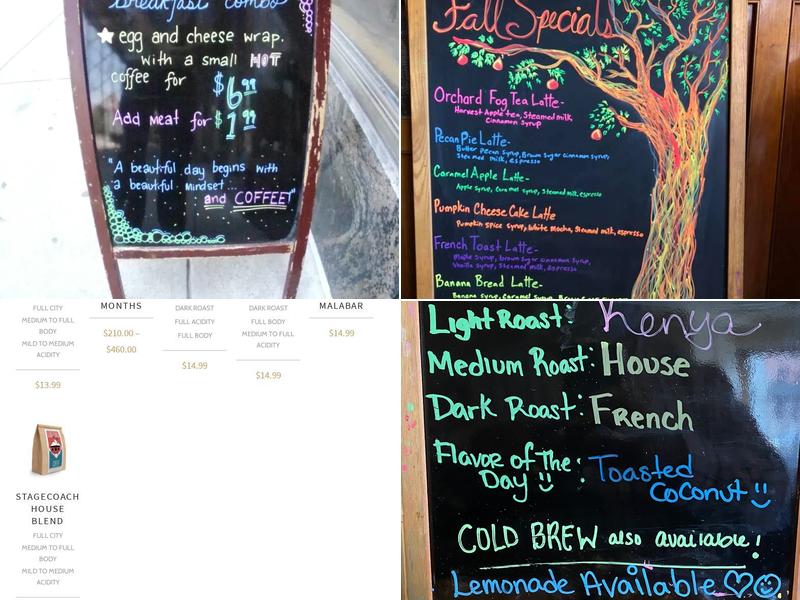 breakfast combo
egg and cheese wrap.
with a small HOT
coffee for $6.99
Add meat for $1.99
"A beautiful day begins with
a beautiful mindset...
and COFFEE!"
Fall Specials
Orchard Fog Tea Latte-
Harvest Apple tea, Steamed milk,
Cinnamon Syrup
Pecan Pie Latte-
Butter Pecan Syrup, Brown Sugar cinnamon syrup,
Steamed milk, espresso
Caramel Apple Latte-
Apple Syrup, Caramel Syrup, Steamed milk, espresso
Pumpkin Cheese Cake Latte
Pumpkin Spice Syrup, White Mocha, Steamed milk, espresso
French Toast Latte-
Maple Syrup, brown sugar cinnamon syrup,
Vanilla Syrup, Steamed milk, espresso
Banana Bread Latte-
Banana Syrup, Caramel Syrup,
FULL CITY
MEDIUM TO FULL
BODY
MILD TO MEDIUM
ACIDITY
$13.99
MONTHS
$210.00 –
$460.00
DARK ROAST
FULL ACIDITY
FULL BODY
$14.99
DARK ROAST
FULL BODY
MEDIUM TO FULL
ACIDITY
$14.99
MALABAR
$14.99
STAGECOACH
HOUSE
BLEND
FULL CITY
MEDIUM TO FULL
BODY
MILD TO MEDIUM
ACIDITY
Light Roast: Kenya
Medium Roast: House
Dark Roast: French
Flavor of The
Day : Toasted
Coconut
COLD BREW also available!
Lemonade Available